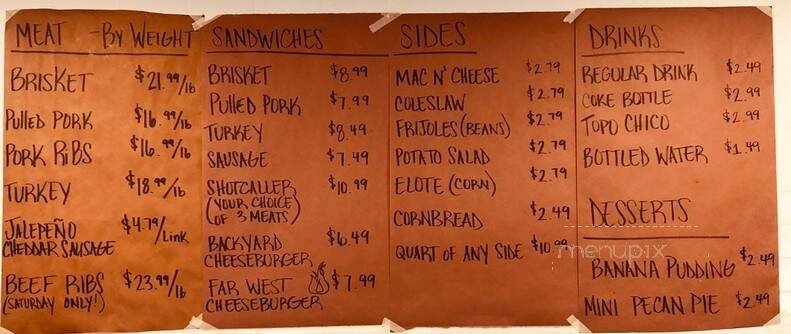 MEAT - BY WEIGHT
BRISKET $21.99/lb
PULLED PORK $16.99/lb
PORK RIBS $16.99/lb
TURKEY $18.99/lb
JALEPEÑO
CHEDDAR SAUSAGE $4.79/LINK
BEEF RIBS $23.99/lb
(SATURDAY ONLY!)
SANDWICHES
BRISKET $8.99
PULLED PORK $7.99
TURKEY $8.49
SAUSAGE $7.49
SHOTCALLER $10.99
(YOUR CHOICE
OF 3 MEATS)
BACKYARD $6.49
CHEESEBURGER
FAR WEST $7.99
CHEESEBURGER
SIDES
MAC N' CHEESE $2.79
COLESLAW $2.79
FRIJOLES (BEANS) $2.79
POTATO SALAD $2.79
ELOTE (CORN) $2.79
CORNBREAD $2.49
QUART OF ANY SIDE $10.99
DRINKS
REGULAR DRINK $2.49
COKE BOTTLE $2.99
TOPO CHICO $2.99
BOTTLED WATER $1.49
DESSERTS
menupix
BANANA PUDDING $2.49
MINI PECAN PIE $2.49